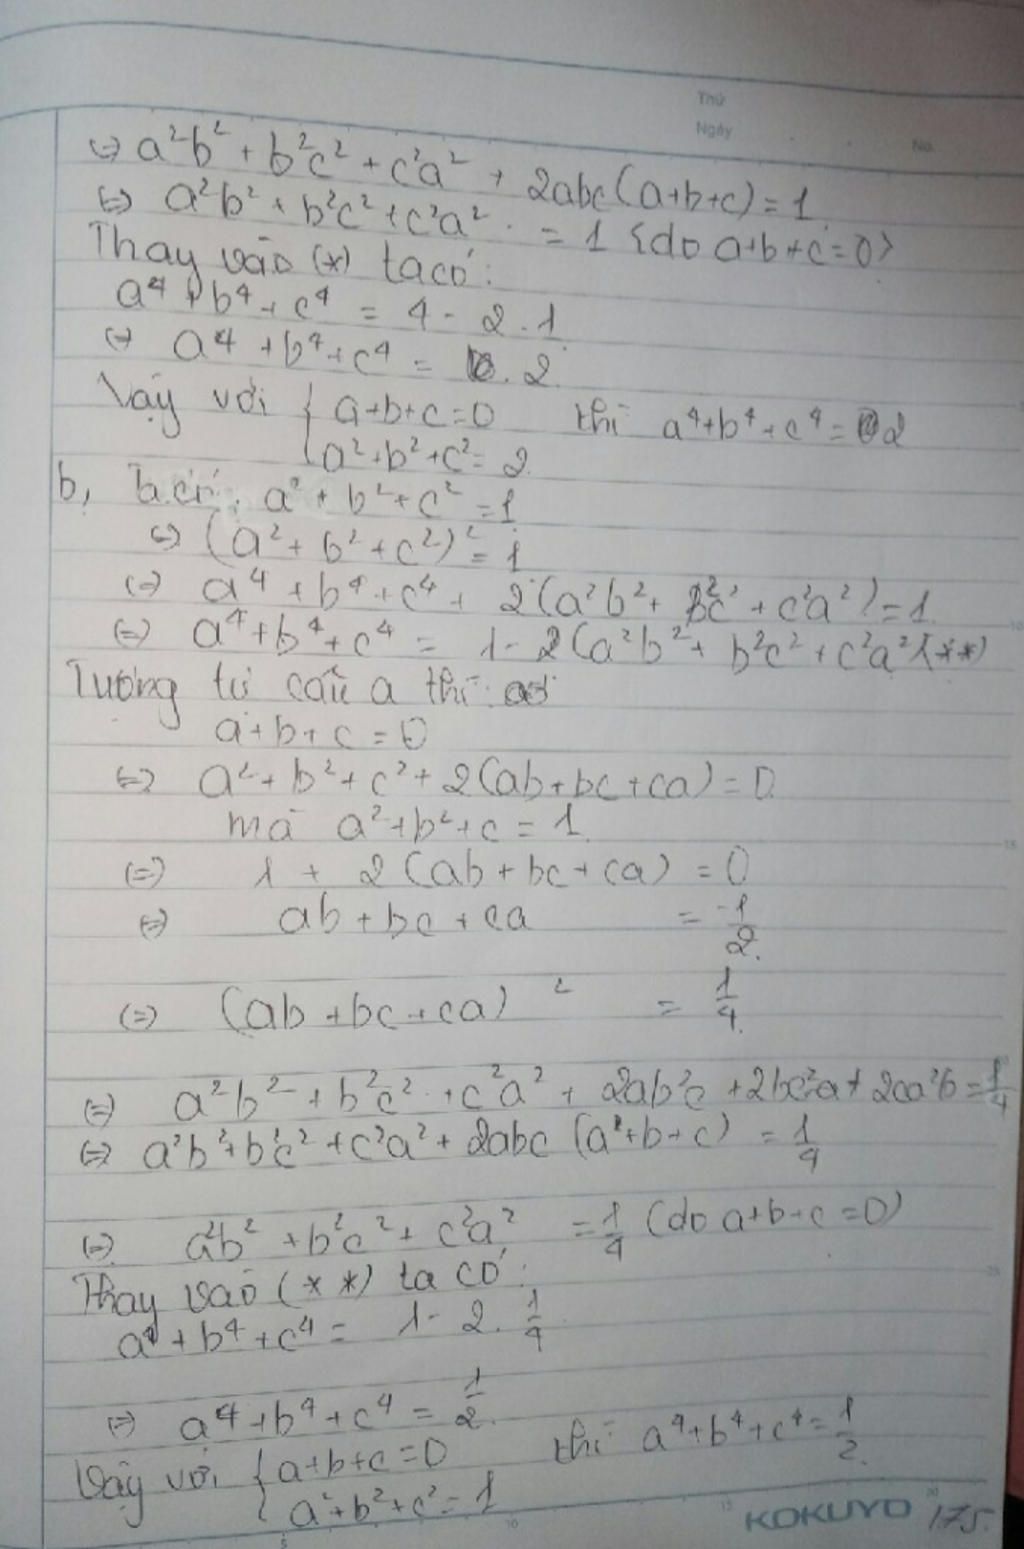 Thứ
Ngày
No.
(=) a²b² + b²c² + c²a² + 2abc(a+b+c) = 1
(=) a²b² + b²c² + c²a² . = 1 {do a+b+c=0}
Thay vào (*) ta có:
a⁴ + b⁴ + c⁴ = 4 - 2.1
(=) a⁴ + b⁴ + c⁴ = 2
Vậy với { a+b+c=0 thì a⁴+b⁴+c⁴ = 2
a²+b²+c²=2
b, Ta có: a² + b² + c² = 1
(=) (a² + b² + c²)² = 1
(=) a⁴ + b⁴ + c⁴ + 2(a²b² + b²c² + c²a²) = 1
(=) a⁴ + b⁴ + c⁴ = 1 - 2(a²b² + b²c² + c²a²)(**)
Tương tự câu a thì:
a + b + c = 0
(=) a² + b² + c² + 2(ab+bc+ca) = 0
mà a²+b²+c = 1
(=) 1 + 2(ab + bc + ca) = 0
(=) ab + bc + ca = -1/2.
(=) (ab + bc + ca)² = 1/4.
(=) a²b² + b²c² + c²a² + 2ab²c + 2bc²a + 2ca²b = 1/4
(=) a²b² + b²c² + c²a² + 2abc (a+b+c) = 1/4
(=) a²b² + b²c² + c²a² = 1/4 (do a+b+c=0)
Thay vào (**) ta có:
a⁴ + b⁴ + c⁴ = 1 - 2. 1/4
(=) a⁴ + b⁴ + c⁴ = 1/2.
Vậy với { a+b+c=0 thì a⁴+b⁴+c⁴ = 1/2.
a²+b²+c²=1
KOKUYO 175.